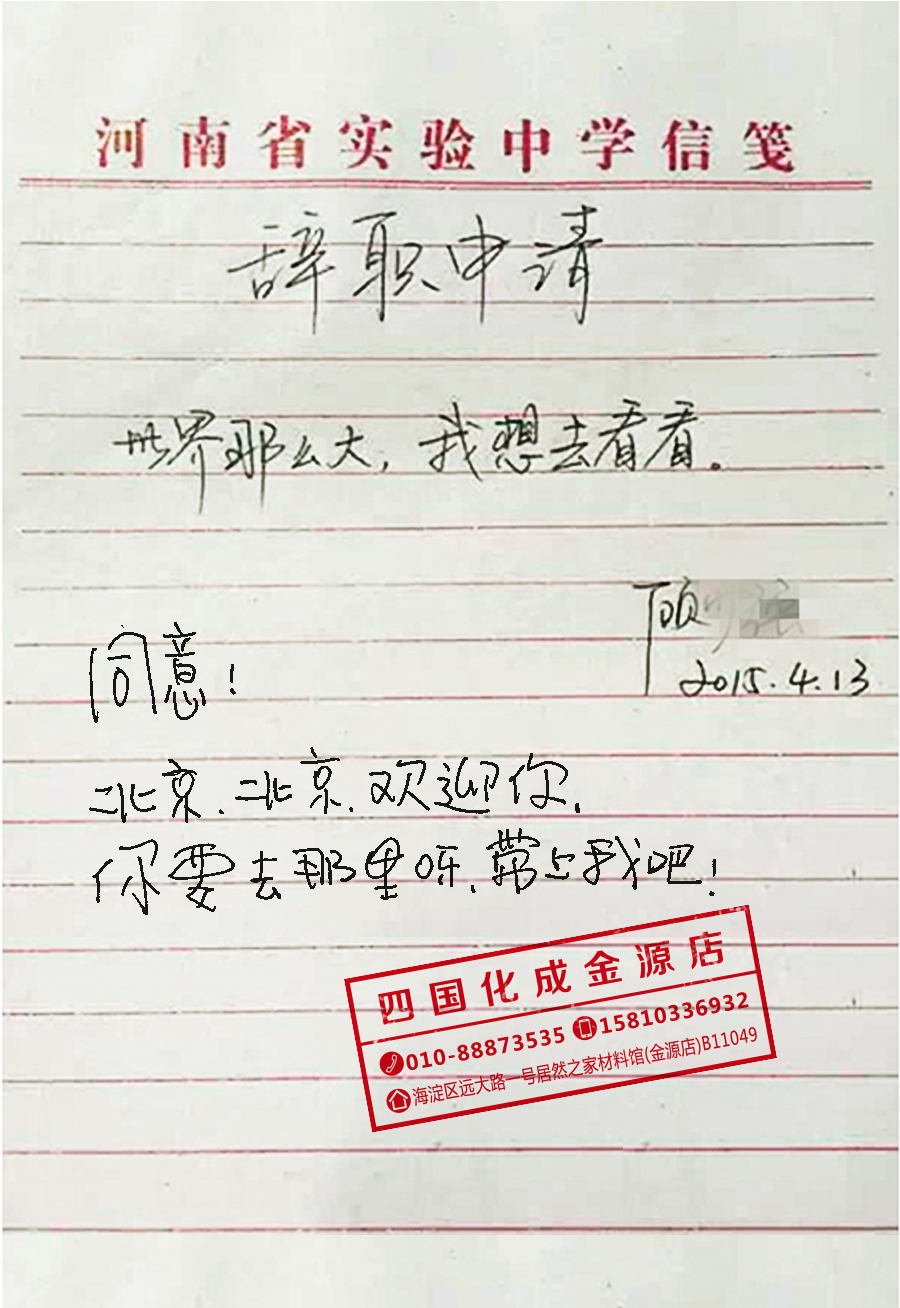 河南省实验中学信笺
辞职申请
世界那么大，我想去看看。
顾
2015.4.13
同意！
北京、北京、欢迎你，
你要去那里呀、带上我吧！
四国化成金源店
010-88873535 15810336932
海淀区远大路一号居然之家材料馆(金源店)B11049